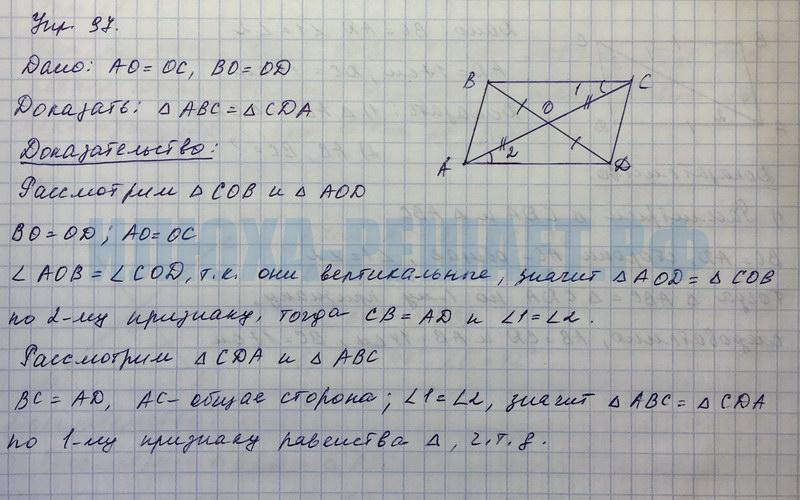 Упр 97.
Дано: AO = OC, BO = OD
Доказать: △ ABC = △ CDA
Доказательство:
Рассмотрим △ COB и △ AOD
BO = OD; AO = OC
∠ AOB = ∠ COD, т.к. они вертикальные, значит △ AOD = △ COB
по 2-му признаку, тогда CB = AD и ∠1 = ∠2.
Рассмотрим △ CDA и △ ABC
BC = AD, AC - общая сторона; ∠1 = ∠2, значит △ ABC = △ CDA
по 1-му признаку равенства △, ч.т.д.
B 1 C
O
A 2 D
ИЛЮХА-РЕШАЕТ.РФ